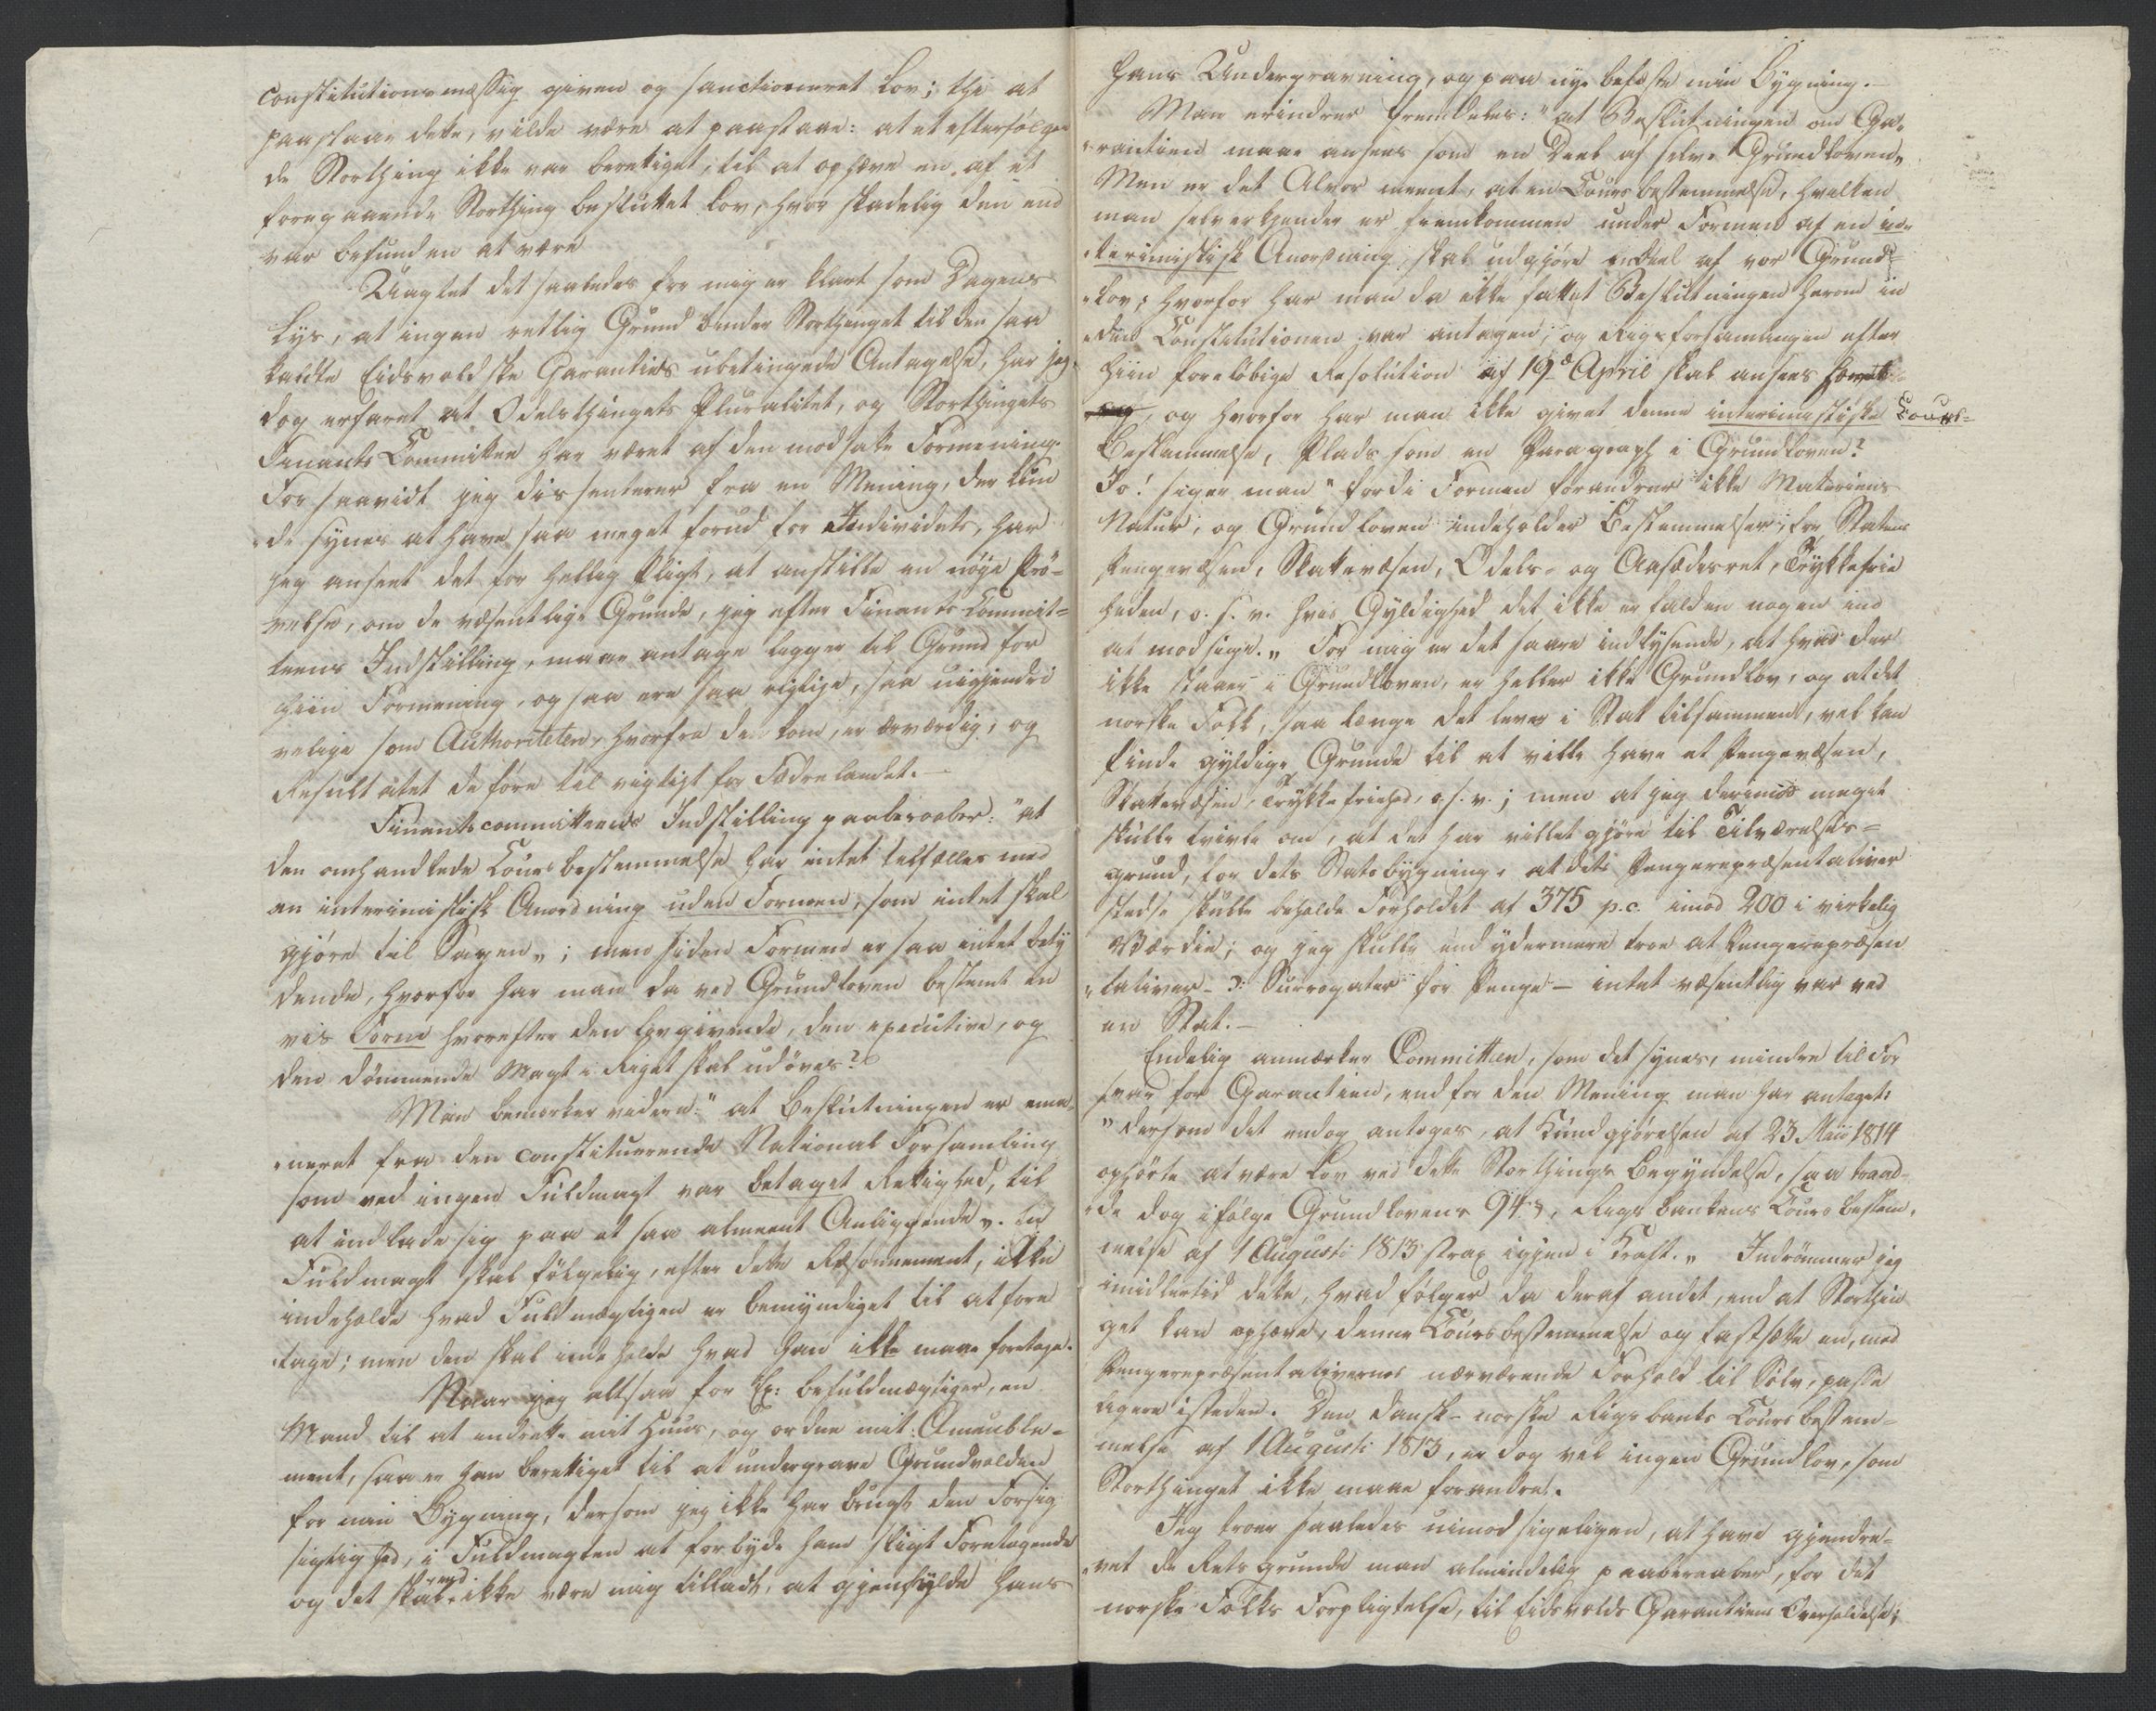 constitutionsmæssig given og sanctioneret Lov; thi at
paastaae dette, vilde være at paastaae: at et efterfølgen
de Storthing ikke var berettiget, til at ophæve en af et
foregaaende Storthing besluttet Lov, hvor skadelig den end
var befunden at være
Uagtet det saaledes for mig er klart som Dagens
Lys, at ingen retlig Grund binder Storthinget til den saa
kaldte Eidsvoldske Garanties ubetingede Antagelse, har jeg
dog erfaret at Odelsthingets Pluralitet, og Storthingets
Finants Committee har været af den modsatte Formening.
For saavidt jeg dissenterer fra en Mening, der kun
de synes at have saa meget forud for Individets, har
jeg anseet det for hellig Pligt, at anstille en nøye Prø-
velse, om de væsentlige Grunde, jeg efter Finants-Commit-
teens Indstilling, maae antage ligger til Grund for
hiin Formening, og saa ere saa rigtige, saa uigjendri
velige som Authoriteten, hvorfra de kom, er ærværdig, og
Resultatet de føre til vigtigt for Fædrelandet.-
Finantscommitteens Indstilling paaberaaber: "at
den omhandlede Coursbestemmelse har intet tilfælles med
en interimistisk Anordning uden Formen, som intet skal
gjøre til Sagen„; men siden Formen er saa intet bety
dende, hvorfor har man da ved Grundloven bestemt en
vis Form hvorefter den lovgivende, den executive, og
den dømmende Magt i Riget skal udøves?
Man bemærker videre: "at Beslutningen er ema-
neret fra den constituerende National Forsamling
som ved ingen Fuldmagt var betaget Rettighed, til
at indlade sig paa et saa almeent Anliggende„. En
Fuldmagt skal følgelig, efter dette Ræsonnement, ikke
indeholde hvad Fuldmægtigen er bemyndiget til at fore
tage; men den skal indeholde hvad han ikke maae foretage.
Naar jeg altsaa for Ex: befuldmægtiger, en
Mand til at indrette mit Huus, og ordne mit Ameuble-
ment, saa er han berettiget til at undergrave Grundvolden
for min Bygning, dersom jeg ikke har brugt den Forsig
tighed, i Fuldmagten at forbyde ham sligt Foretagende
og det skal end ikke være mig tilladt, at gjenfylde hans
hans Undergravning, og paa nye befæste min Bygning.-
Man erindrer fremdeles: "at Beslutningen om Ga-
rantien maae ansees som en Deel af selve Grundloven„
Men er det Alvor meent, at en Coursbestemmelse, hvilken
man selv erkjender er fremkommen under Formen af en in-
terimistisk Anordning, skal udgjøre en Deel af vor Grund-
Lov; hvorfor har man da ikke fattet Beslutningen herom in
den Constitutionen var antagen, og Rigsforsamlingen efter
hiin foreløbige Resolution af 19d April skal ansees hævet
, og hvorfor har man ikke givet denne interimistiske Cours-
Bestemmelse, Plads som en Paragraph i Grundloven?
Jo! siger man "fordi Formen forandrer ikke Materiens
Natur, og Grundloven indeholder Bestemmelser, for Statens
Pengevæsen, Skattevæsen, Odels- og Aasædesret, Trykkefrie
heden, o. s. v. hvis Gyldighed det ikke er falden nogen ind
at modsige.„ For mig er det saare indlysende, at hvad der
ikke staaer i Grundloven, er heller ikke Grundlov, og at det
norske Folk, saa længe det lever i Stat tilsammen, vel kan
finde gyldige Grunde til at ville have et Pengevæsen,
Skattevæsen, Trykkefriehed, o. s. v.; men at jeg derimod meget
skulde tvivle om, at det har villet gjøre til Tilværelses-
grund, for dets Statsbygning, at dets Pengerepræsentativer
stedse skulde beholde Forholdet af 375 p.c. imod 200 i virkelig
Værdie; og jeg skulde end ydermere troe at Pengerepræsen
tativer - ɔ: Surrogater for Penge - intet væsentlig var ved
en Stat.-
Endelig anmærker Committeen, som det synes, mindre til For
svar for Garantien, end for den Mening man har antaget:
"dersom det endog antoges, at Kundgjørelsen af 23 Maii 1814
ophørte at være Lov ved dette Storthings Begyndelse, saa traad-
de dog ifølge Grundlovens 94 §, Rigsbankens Coursbestem-
melse af 1 Augusti 1813 strax igjen i Kraft.„ Indrømmer jeg
imidlertid dette, hvad følger da deraf andet, end at Storthin
get kan ophæve, denne Coursbestemmelse og fastsætte en, med
Pengerepræsentativernes nærværende Forhold til Sølv, passe
ligere isteden. Den dansk-norske Rigsbanks Coursbestem-
melse af 1 Augusti 1813, er dog vel ingen Grundlov, som
Storthinget ikke maae forandre.
Jeg troer saaledes uimodsigeligen, at have gjendre-
vet de Retsgrunde man almindelig paaberaaber, for det
norske Folks Forpligtelse, til Eidsvolds Garantiens Overholdelse;